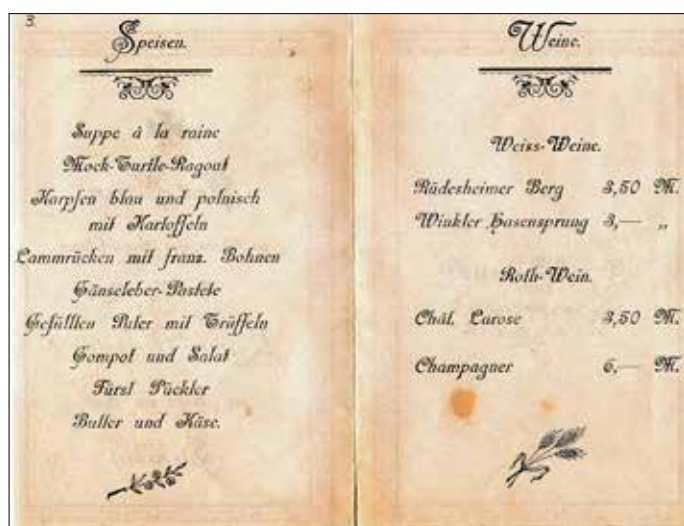 3.
Speisen.
Suppe à la raine
Mock-Turtle-Ragout
Karpfen blau und polnisch
mit Kartoffeln
Lammrücken mit franz. Bohnen
Gänseleber-Pastete
Gefüllten Puter mit Trüffeln
Compot und Salat
Fürst Pückler
Butter und Käse.
Weine.
Weiss-Weine.
Rüdesheimer Berg 3,50 M.
Winkler Hasensprung 3,— „
Roth-Wein.
Chât. Larose 3,50 M.
Champagner 6,— M.